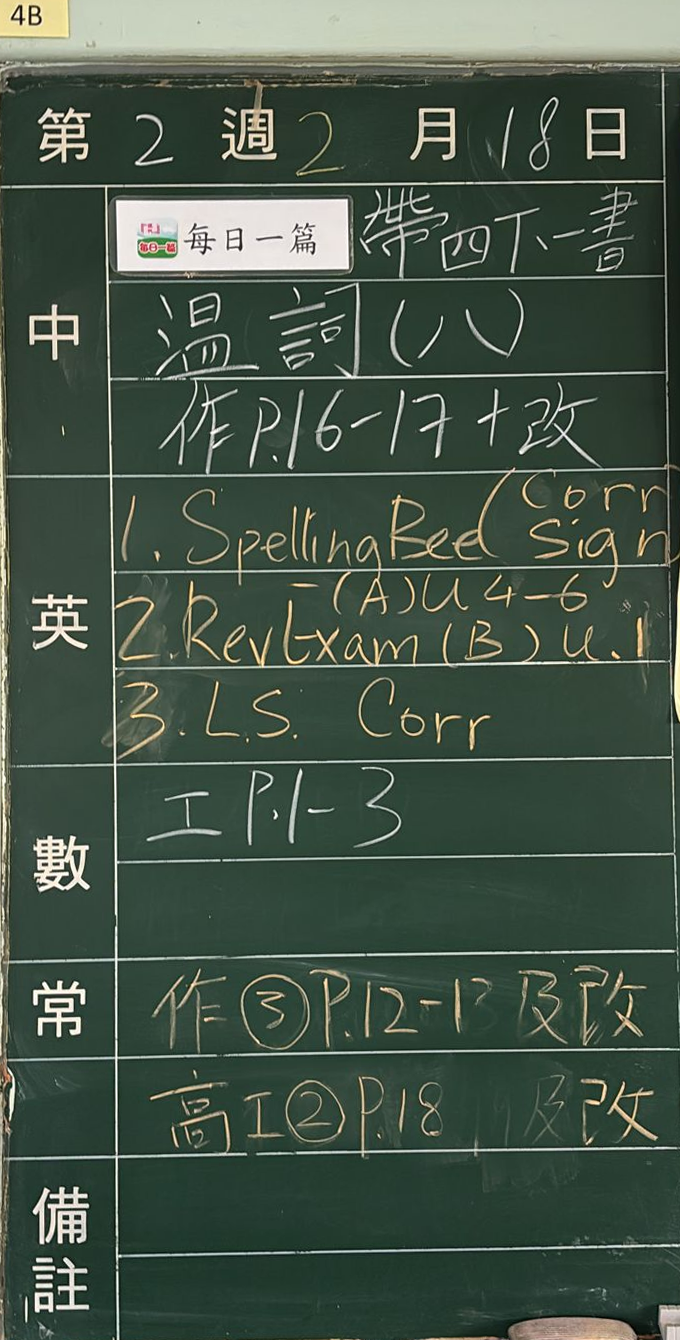 4B
第 2 週 2 月 18 日
中
每日一篇 每日一篇 帶四下一書
溫詞(八)
作P.16-17+改
英
1. Spelling Bee (Corr Sign
2. Rev Exam -(A) U4-6 (B) U.1
3. L.S. Corr
數
工 P.1-3
常
作③P.12-13及改
高工②P.18 及改
備註